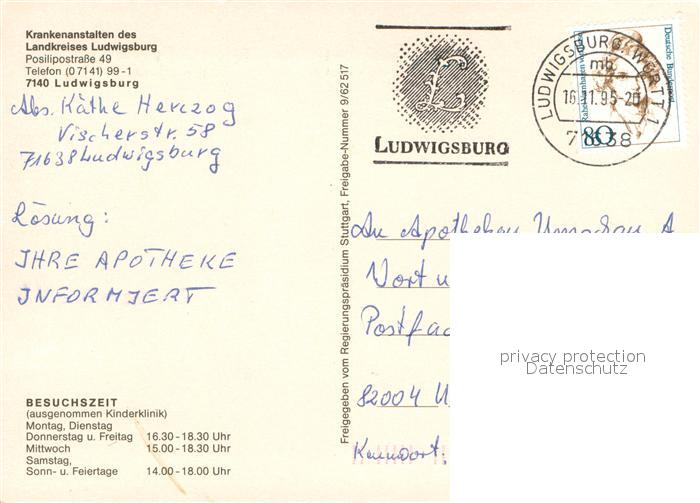 Krankenanstalten des
Landkreises Ludwigsburg
Posilipostraße 49
Telefon (0 71 41) 99-1
7140 Ludwigsburg
Abs. Käthe Herczog
Vischerstr. 58
71638 Ludwigsburg
Lösung:
IHRE APOTHEKE
INFORMIERT
BESUCHSZEIT
(ausgenommen Kinderklinik)
Montag, Dienstag
Donnerstag u. Freitag 16.30-18.30 Uhr
Mittwoch 15.00-18.30 Uhr
Samstag,
Sonn- u. Feiertage 14.00-18.00 Uhr
Freigegeben vom Regierungspräsidium Stuttgart, Freigabe-Nummer 9/62 517
L
LUDWIGSBURG
LUDWIGSBURG, WÜRTT 1
mb
16.11.95-20
71638
Deutsche Bundespost
80
An Apotheken Umschau A
Wort u
Postfac
82004 U
Kennwort:
privacy protection
Datenschutz